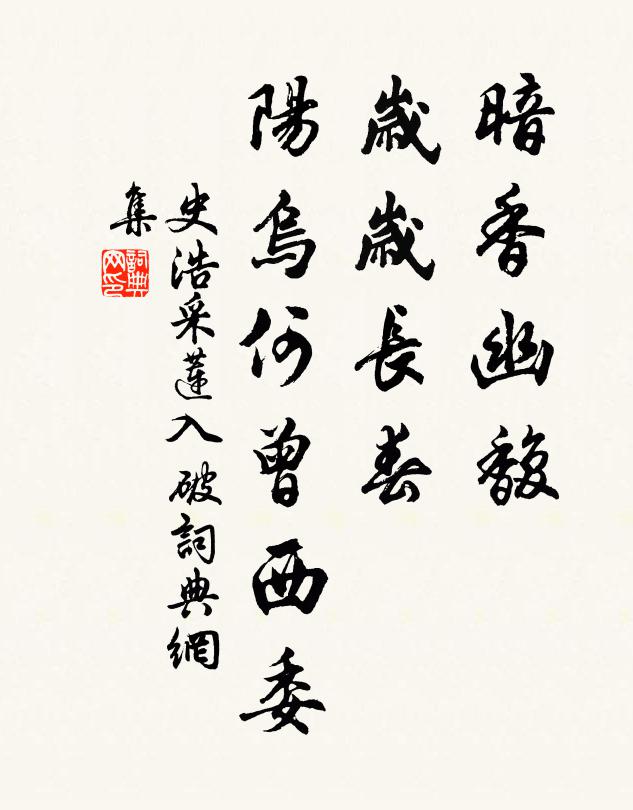 暗香幽馥
歲歲長春
陽烏何曾西委
史浩采蓮入破詞典網
集
詞典
网印